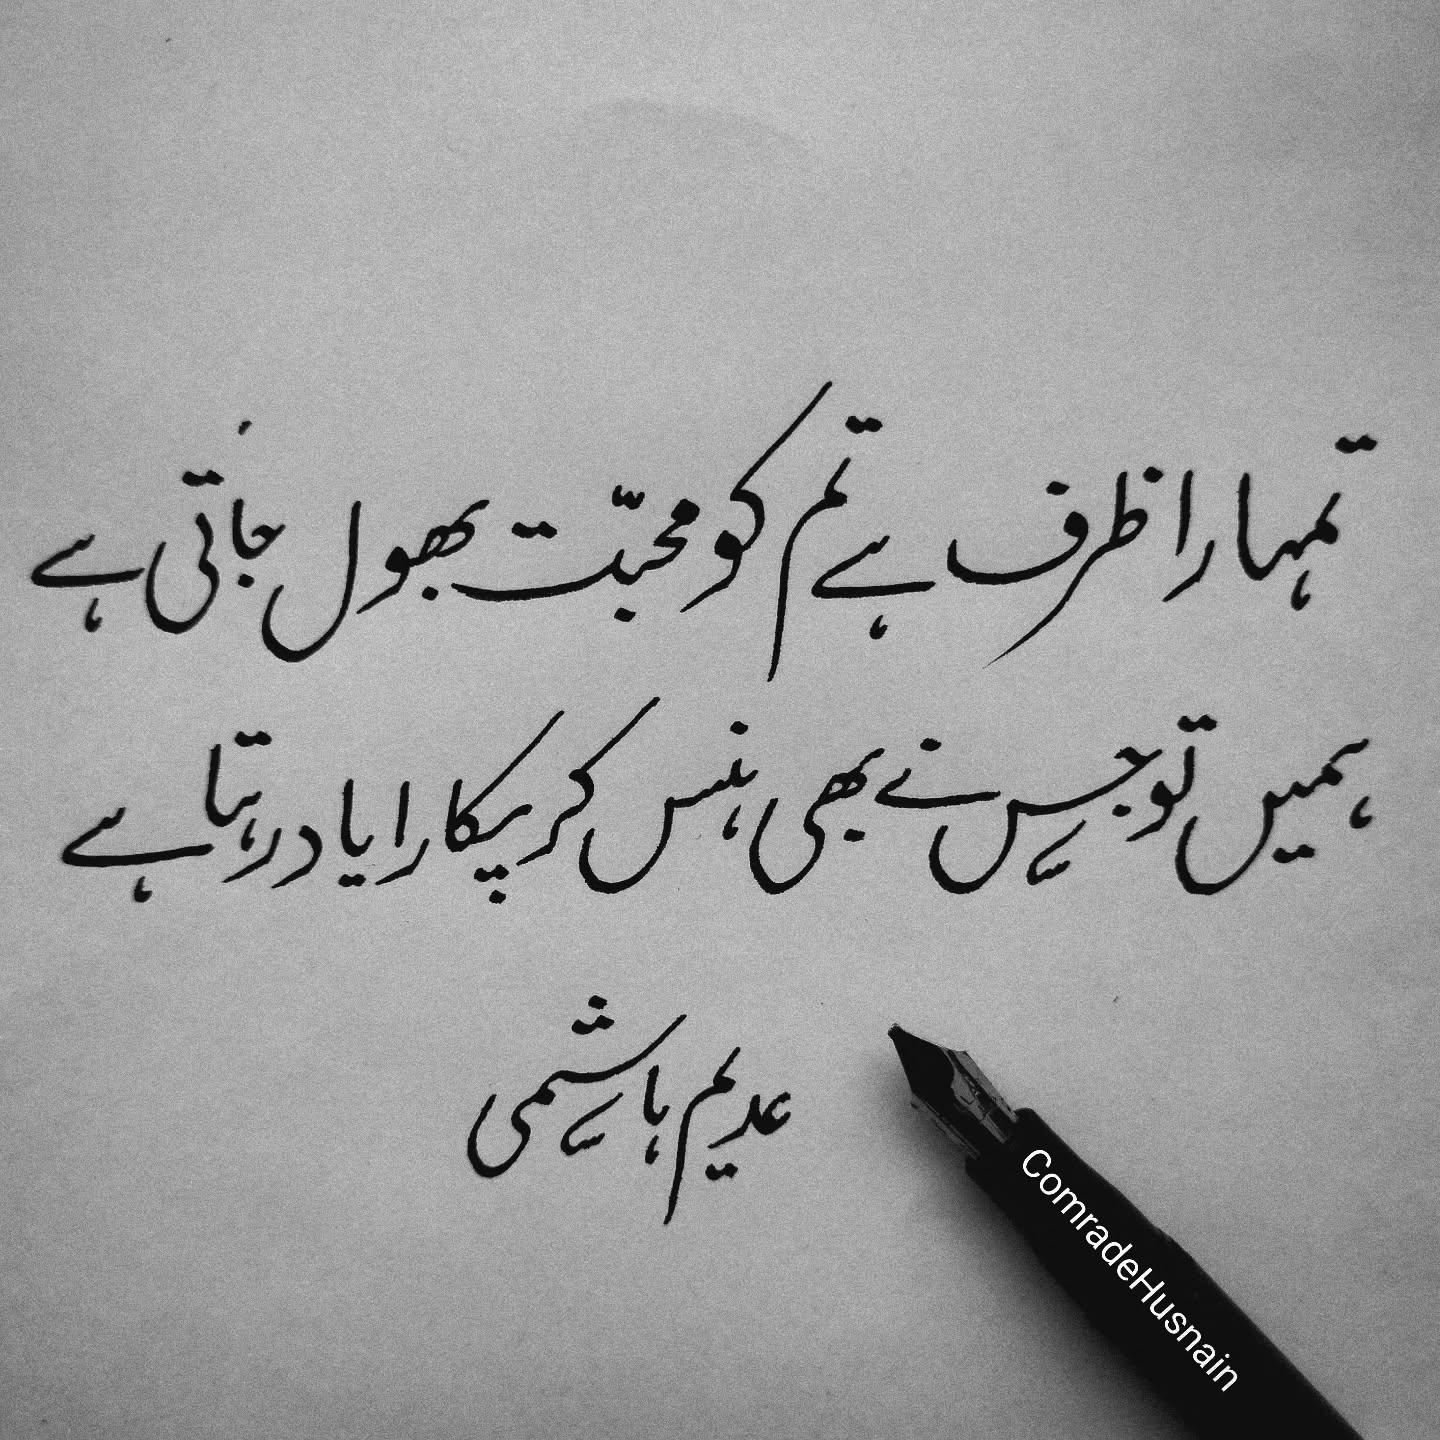 تمہارا ظرف ہے تم کو محبّت بھول جاتی ہے
ہمیں تو جس نے بھی ہنس کر پکارا یاد رہتا ہے
عدیم ہاشمی
ComradeHusnain